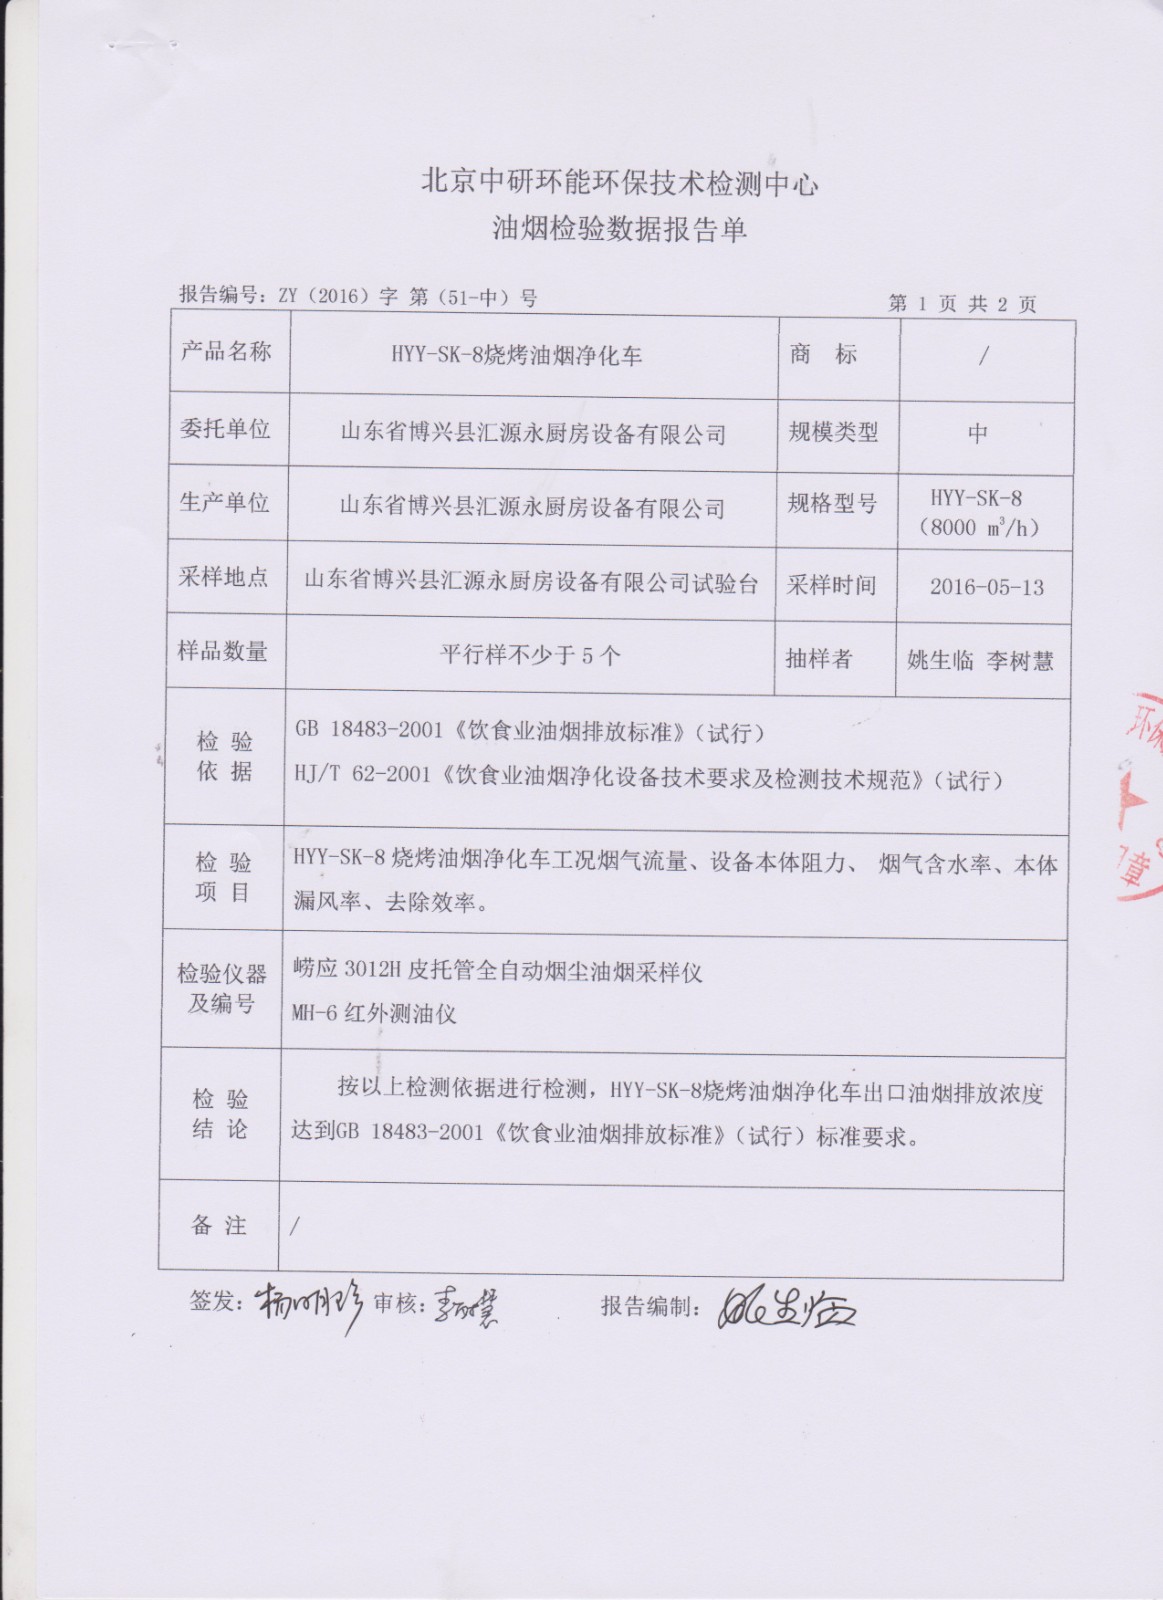 北京中研环能环保技术检测中心
油烟检验数据报告单
报告编号：ZY（2016）字 第（51-中）号
第 1 页 共 2 页
产品名称 HYY-SK-8烧烤油烟净化车 商 标 /
委托单位 山东省博兴县汇源永厨房设备有限公司 规模类型 中
生产单位 山东省博兴县汇源永厨房设备有限公司 规格型号 HYY-SK-8
（8000 m³/h）
采样地点 山东省博兴县汇源永厨房设备有限公司试验台 采样时间 2016-05-13
样品数量 平行样不少于 5 个 抽样者 姚生临 李树慧
检 验
依 据
GB 18483-2001《饮食业油烟排放标准》（试行）
HJ/T 62-2001《饮食业油烟净化设备技术要求及检测技术规范》（试行）
检 验
项 目
HYY-SK-8 烧烤油烟净化车工况烟气流量、设备本体阻力、 烟气含水率、本体
漏风率、去除效率。
检验仪器
及编号
崂应 3012H 皮托管全自动烟尘油烟采样仪
MH-6 红外测油仪
检 验
结 论
按以上检测依据进行检测，HYY-SK-8烧烤油烟净化车出口油烟排放浓度
达到GB 18483-2001《饮食业油烟排放标准》（试行）标准要求。
备 注 /
签发：杨明珍 审核：李树慧 报告编制：姚生临
环保
章